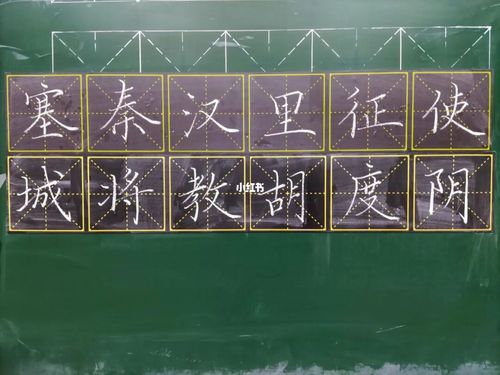 塞秦汉里征使
城将教胡度阴
小红书